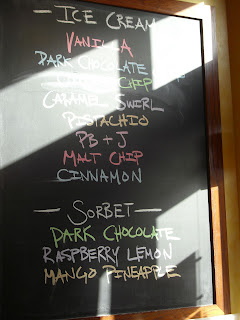 — ICE CREAM
VANILLA
DARK CHOCOLATE
CHIP
CARAMEL SWIRL
PISTACHIO
PB + J
MALT CHIP
CINNAMON
— SORBET —
DARK CHOCOLATE
RASPBERRY LEMON
MANGO PINEAPPLE